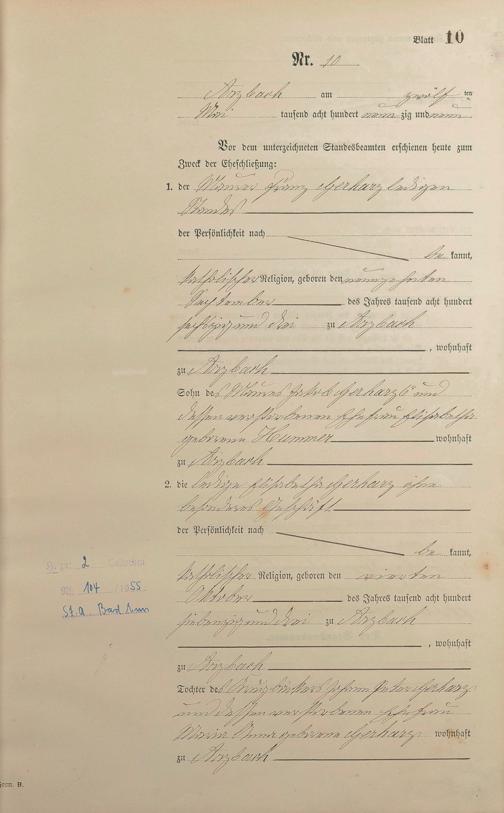 Blatt 10
Nr. 10
Arzbach am zwölften
Mai tausend acht hundert neunzig und neun
Vor dem unterzeichneten Standesbeamten erschienen heute zum
Zweck der Eheschließung:
1. der Maurer Franz Gerharz ledigen
Standes
der Persönlichkeit nach
bekannt,
katholischer Religion, geboren den neunzehnten
September des Jahres tausend acht hundert
sechszig und drei zu Arzbach
, wohnhaft
zu Arzbach
Sohn des Maurers Jakob Gerharz und
dessen verstorbenen Ehefrau Elisabetha
geborene Hummer wohnhaft
zu Arzbach
2. die ledige Elisabetha Gerharz ohne
besonderes Geschäft
der Persönlichkeit nach
bekannt,
katholischer Religion, geboren den vierten
Oktober des Jahres tausend acht hundert
siebenzig und drei zu Arzbach
, wohnhaft
zu Arzbach
Tochter des Johann Peter Gerharz
und dessen verstorbenen Ehefrau
Maria Anna geborene Gerharz wohnhaft
zu Arzbach
2
104 / 1955
St. A. Bad Ems
Form. B.